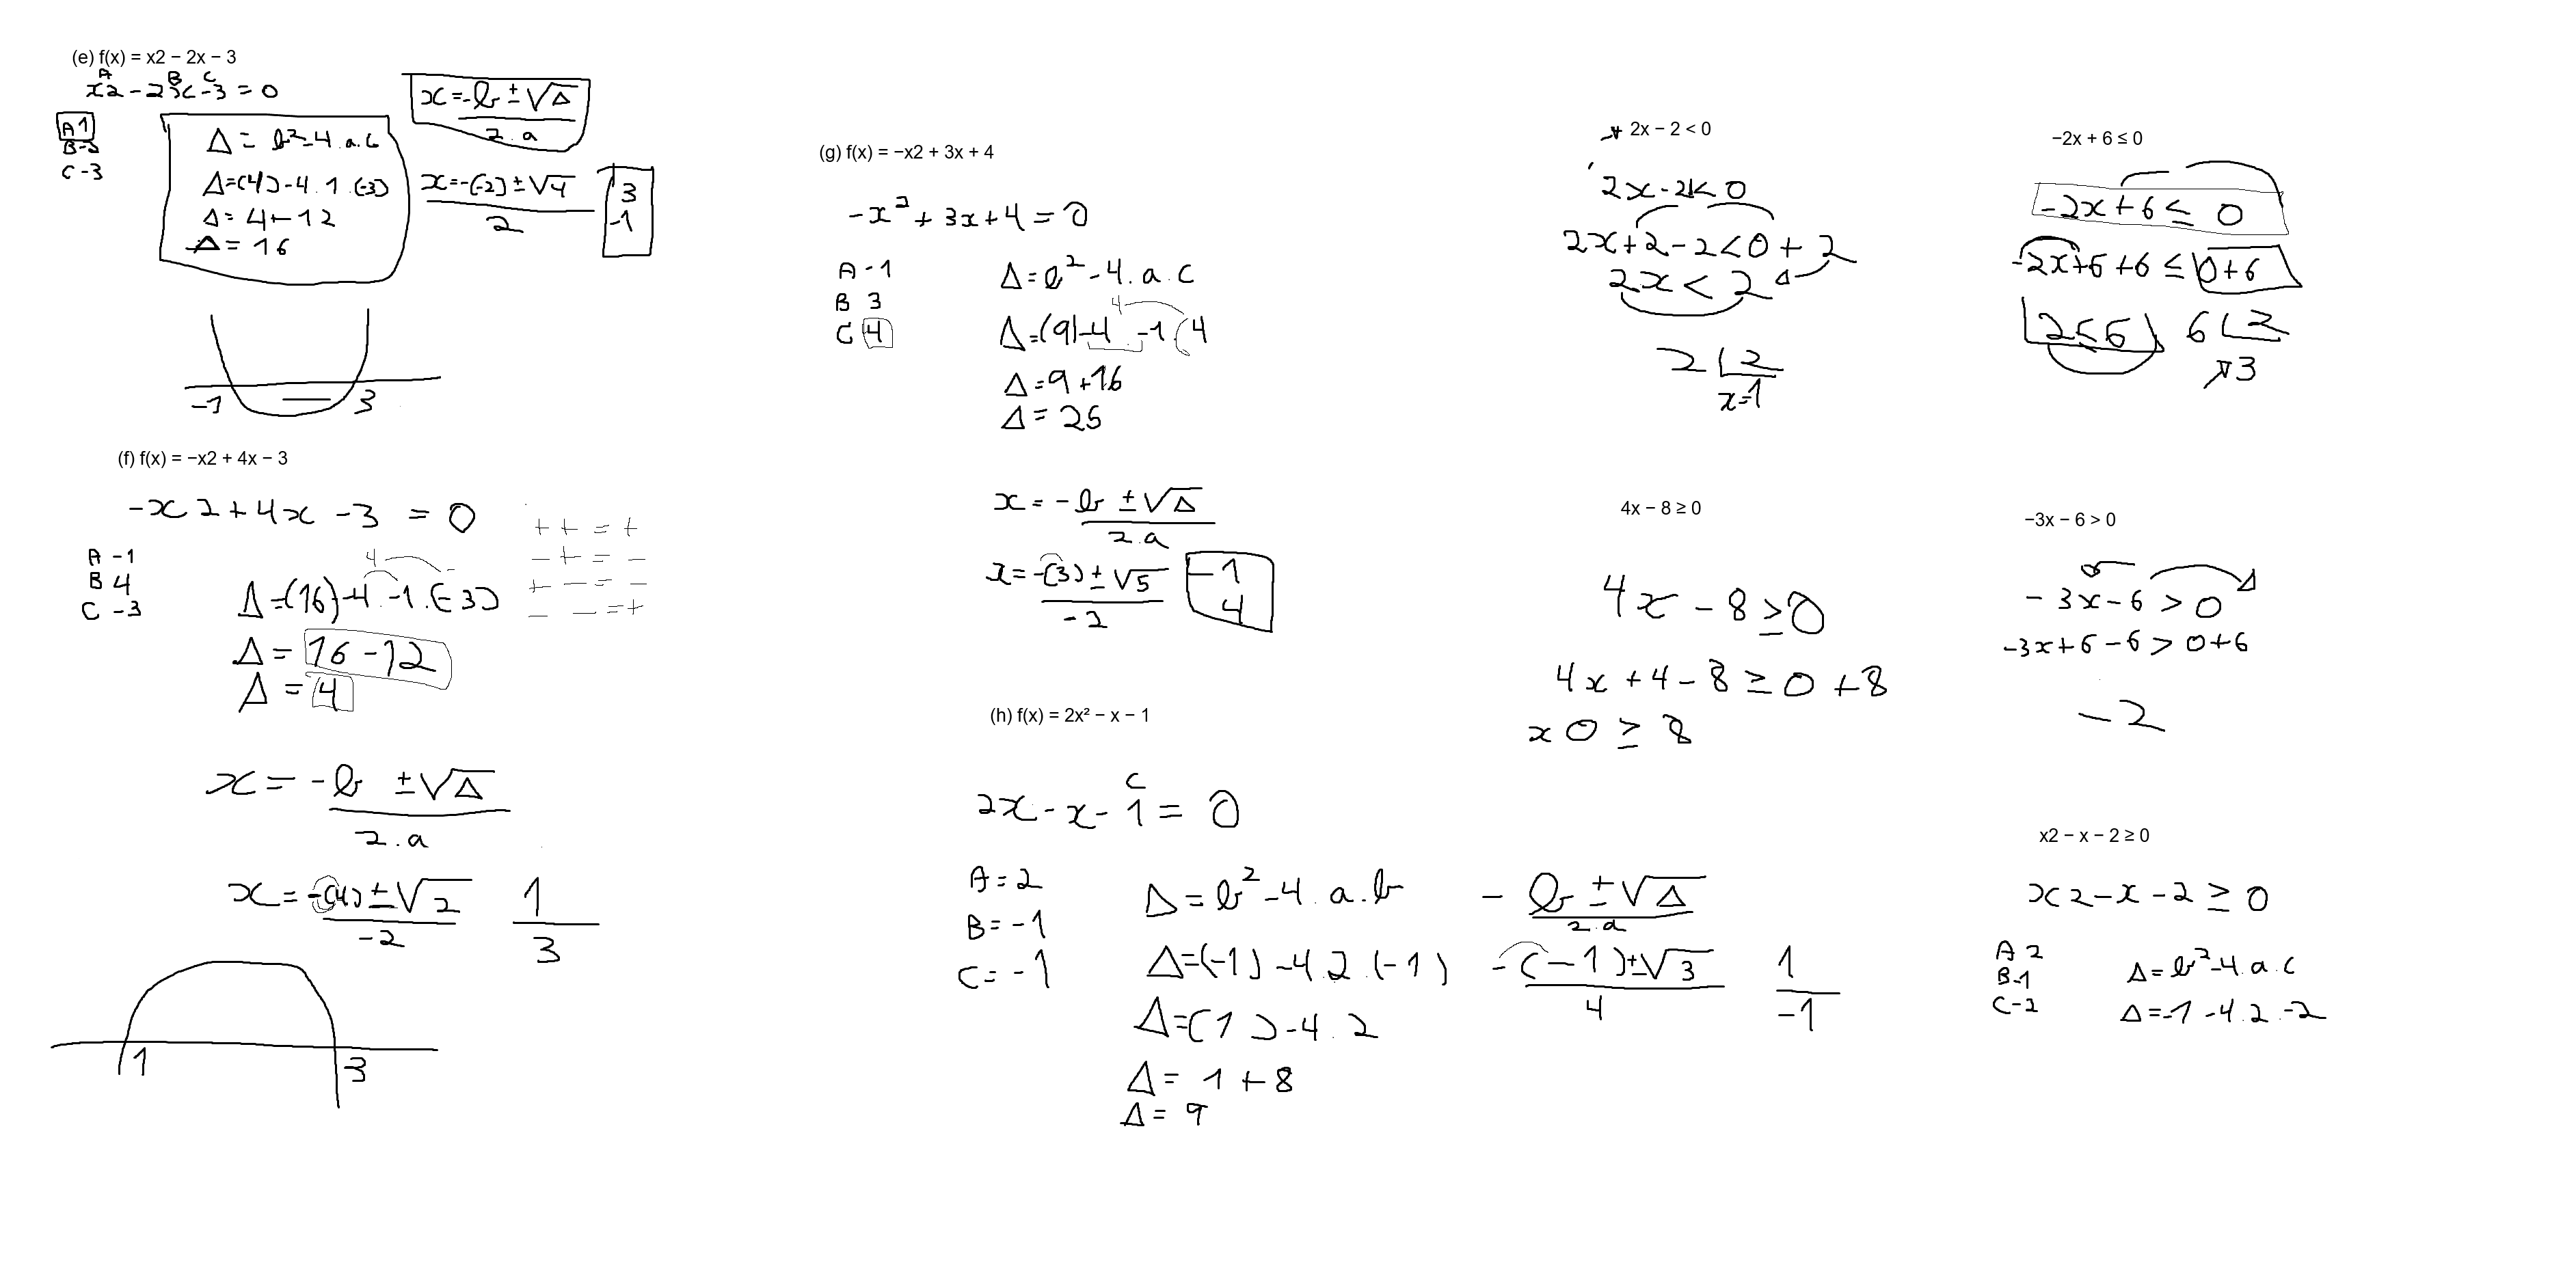 (e) f(x) = x2 − 2x − 3
A B C
x2 - 2x - 3 = 0
A 1
B -2
C -3
Δ = b² - 4 . a . c
Δ = (4) - 4 . 1 . (-3)
Δ = 4 + 12
Δ = 16
x = -b ± √Δ
2 . a
x = -(-2) ± √4
2
3
-1
-1 3
(f) f(x) = −x2 + 4x − 3
-x2 + 4x - 3 = 0
A -1
B 4
C -3
4 -
Δ = (16) - 4 . -1 . (-3)
Δ = 16 - 12
Δ = 4
+ + = +
- + = -
+ - = -
- - = +
x = -b ± √Δ
2 . a
x = -(4) ± √2
-2
1
3
1 3
(g) f(x) = −x2 + 3x + 4
-x² + 3x + 4 = 0
A -1
B 3
C 4
Δ = b² - 4 . a . c
4
Δ = (9) - 4 . -1 (4
Δ = 9 + 16
Δ = 25
x = -b ± √Δ
2 . a
x = -(3) ± √5
-2
-1
4
(h) f(x) = 2x² − x − 1
C
2x - x - 1 = 0
A = 2
B = -1
C = -1
Δ = b² - 4 . a . b
Δ = (-1) - 4 . 2 . (-1)
Δ = (1) - 4 . 2
Δ = 1 + 8
Δ = 9
-b ± √Δ
2 . a
-(-1) ± √3
4
1
-1
2x − 2 < 0
2x - 2 < 0
2x + 2 - 2 < 0 + 2
2x < 2
2 2
x = 1
4x − 8 ≥ 0
4x - 8 ≥ 0
4x + 4 - 8 ≥ 0 + 8
x 0 ≥ 8
−2x + 6 ≤ 0
-2x + 6 ≤ 0
-2x + 6 + 6 ≤ 0 + 6
2 ≤ 6 6 2
3
−3x − 6 > 0
-3x - 6 > 0
-3x + 6 - 6 > 0 + 6
-2
x2 − x − 2 ≥ 0
x2 - x - 2 ≥ 0
A 2
B -1
C -2
Δ = b² - 4 . a . c
Δ = -1 - 4 . 2 . -2